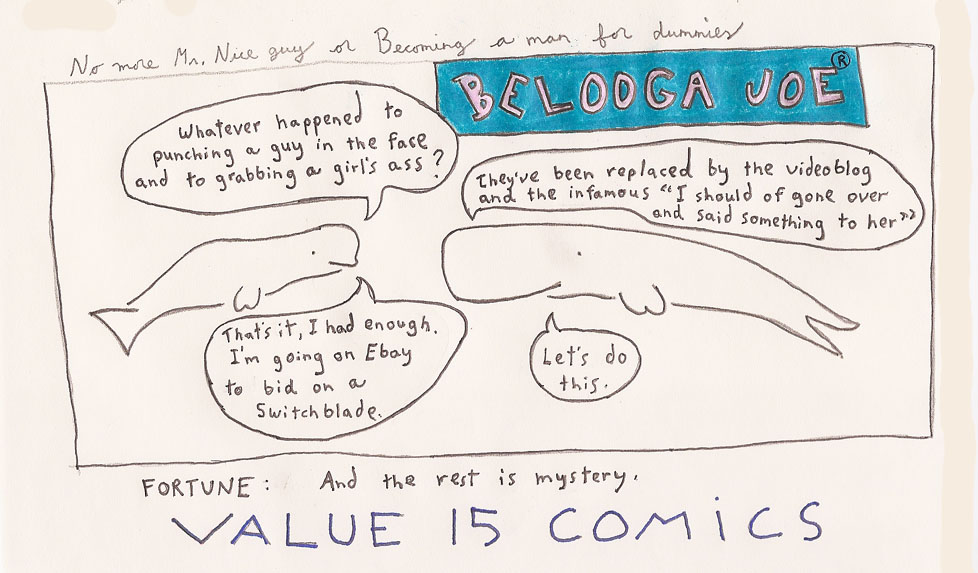 No more Mr. Nice guy or Becoming a man for dummies
BELOOGA JOE®
Whatever happened to
punching a guy in the face
and to grabbing a girl's ass?
They've been replaced by the videoblog
and the infamous "I should of gone over
and said something to her""
That's it, I had enough.
I'm going on Ebay
to bid on a
Switchblade.
Let's do
this.
FORTUNE: And the rest is mystery.
VALUE 15 COMiCS